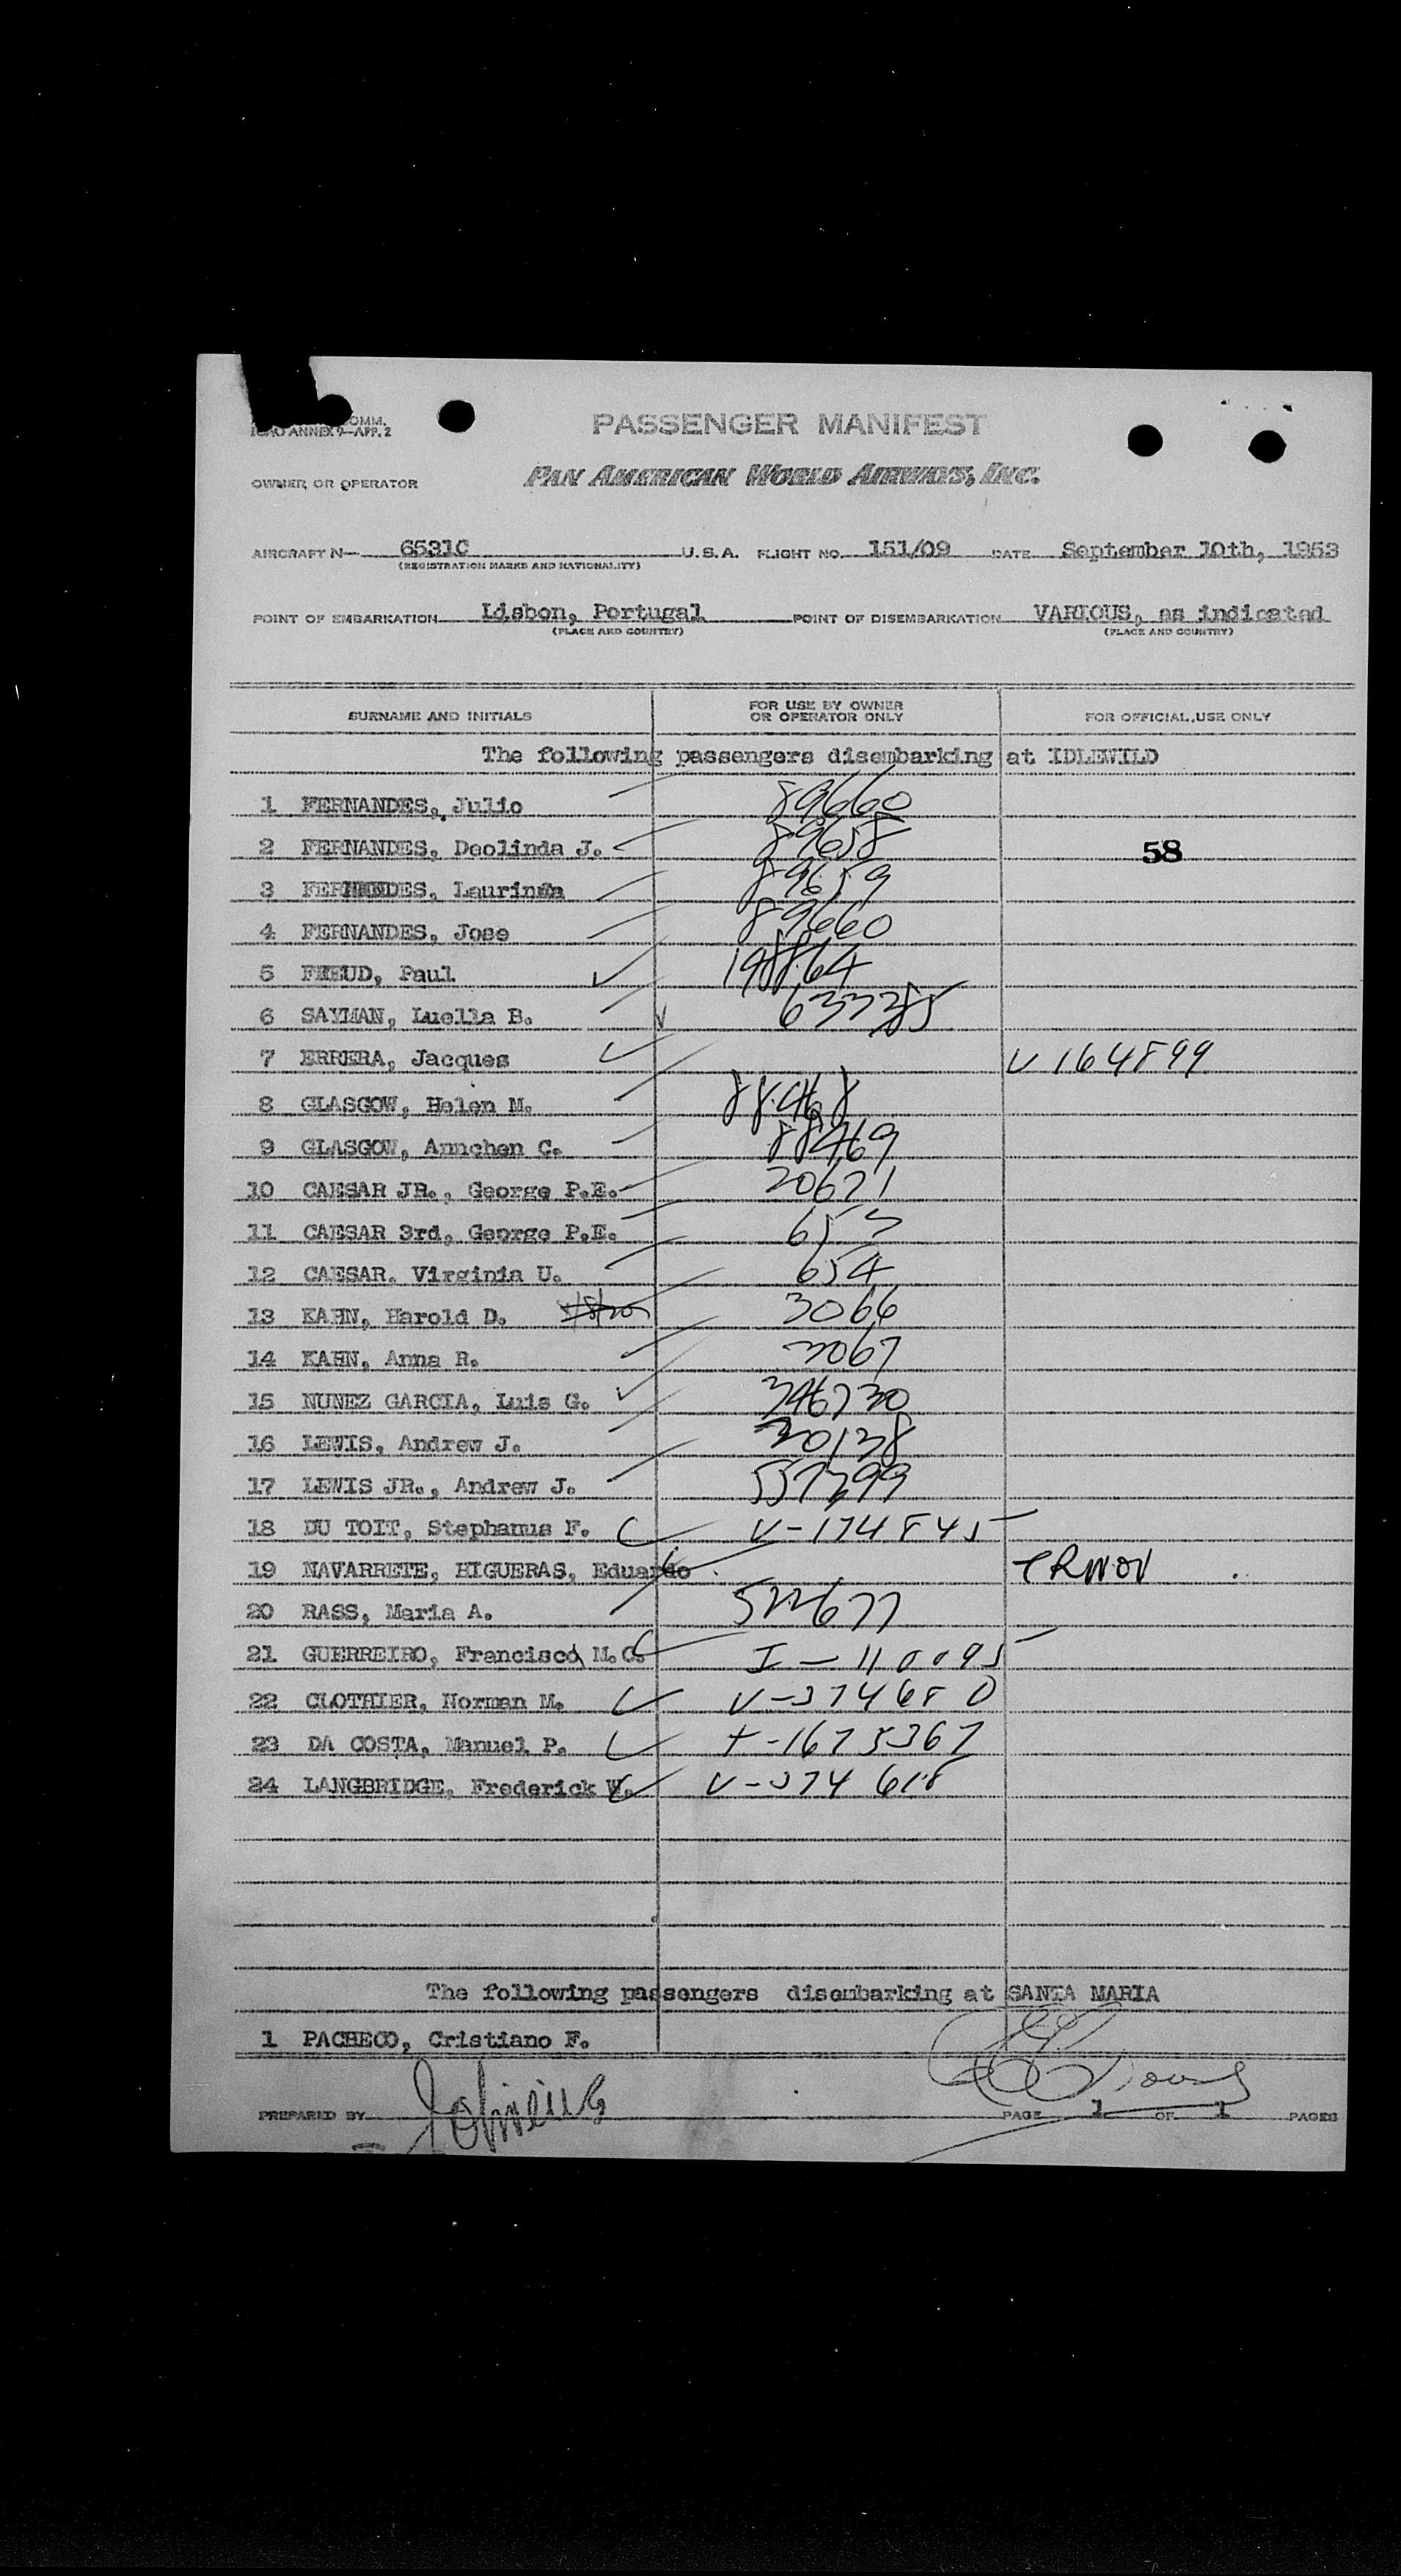 COMM.
ICAO ANNEX 9—APP. 2
PASSENGER MANIFEST
OWNER OR OPERATOR
PAN AMERICAN WORLD AIRWAYS, INC.
AIRCRAFT N— 6531C U.S.A. FLIGHT NO. 151/09 DATE September 10th, 1953
(REGISTRATION MARKS AND NATIONALITY)
POINT OF EMBARKATION Lisbon, Portugal POINT OF DISEMBARKATION VARIOUS, as indicated
(PLACE AND COUNTRY) (PLACE AND COUNTRY)
SURNAME AND INITIALS FOR USE BY OWNER OR OPERATOR ONLY FOR OFFICIAL USE ONLY
The following passengers disembarking at IDLEWILD
1 FERNANDES, Julio 89660
2 FERNANDES, Deolinda J. 89658 58
3 FERNANDES, Laurinda 89659
4 FERNANDES, Jose 89660
5 FREUD, Paul 198864
6 SAYMAN, Luella B.
7 ERRERA, Jacques V 164899
8 GLASGOW, Helen M. 88468
9 GLASGOW, Annchen C. 88469
10 CAESAR JR., George P.E. 20671
11 CAESAR 3rd, George P.E. 653
12 CAESAR. Virginia U. 654
13 KAHN, Harold D. 3066
14 KAHN, Anna R. 3067
15 NUNEZ GARCIA, Luis G. 346730
16 LEWIS, Andrew J. 30138
17 LEWIS JR., Andrew J. 557299
18 DU TOIT, Stephanus F. V-174845
19 NAVARRETE, HIGUERAS, Eduardo TRWOV
20 RASS, Maria A. 522677
21 GUERREIRO, Francisco M.C. I-110095
22 CLOTHIER, Norman M. V-374680
23 DA COSTA, Manuel P.
24 LANGBRIDGE, Frederick W.
The following passengers disembarking at SANTA MARIA
1 PACHECO, Cristiano F.
PREPARED BY PAGE 1 OF 1 PAGES